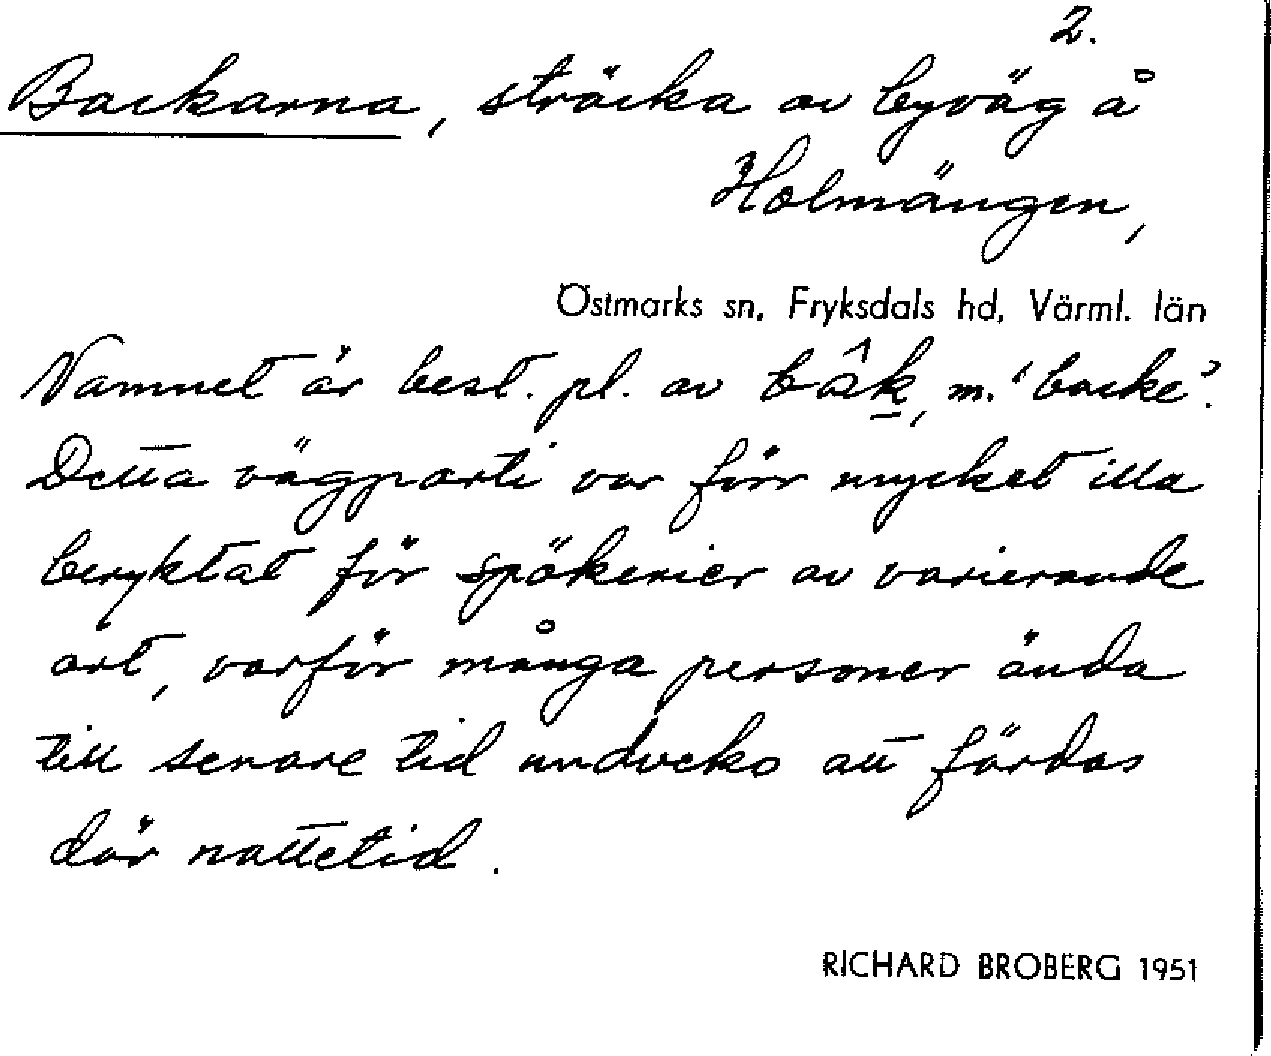 2.
Backarna, sträcka av byväg å
Holmängen,
Östmarks sn, Fryksdals hd, Värml. län
Namnet är best. pl. av bâk, m. 'backe'.
Detta vägparti var förr mycket illa
beryktat för spökerier av varierande
art, varför många personer ända
till senare tid undveko att färdas
där nattetid.
RICHARD BROBERG 1951